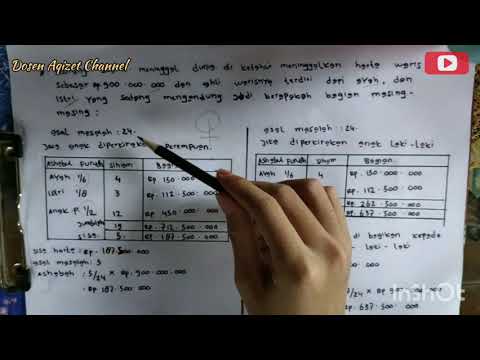 Dosen Aqizet Channel
meninggal dunia di ketahui meninggalkan harta waris
sebesar Rp 900.000.000 dan ahli warisnya terdiri dari ayah, dan
istri yang sedang mengandung jadi berapakah bagian masing-
masing :
asal masalah : 24.
jika anak diperkirakan perempuan.
Ashabul Furudh Siham Bagian
Ayah 1/6 4 Rp. 150.000.000
Istri 1/8 3 Rp. 112.500.000
Anak p. 1/2 12 Rp. 450.000.000
Jumlah 19 Rp. 712.500.000
sisa 5 Rp. 187.500.000
sisa harta : Rp. 187.500.000
asal masalah : 5
Ashabah : 5/24 x Rp. 900.000.000
: Rp 187.500.000
asal masalah : 24.
jika diperkirakan anak laki-laki
Ashabul Furudh Siham Bagian
Ayah 1/6 4 Rp. 150.000.000
Rp. 112.500.000
Rp. 262.500.000
Rp. 637.500.000
di bagikan kepada
laki-laki
/24 x Rp. 900.000.000
Rp. 637.500.000
InShOt